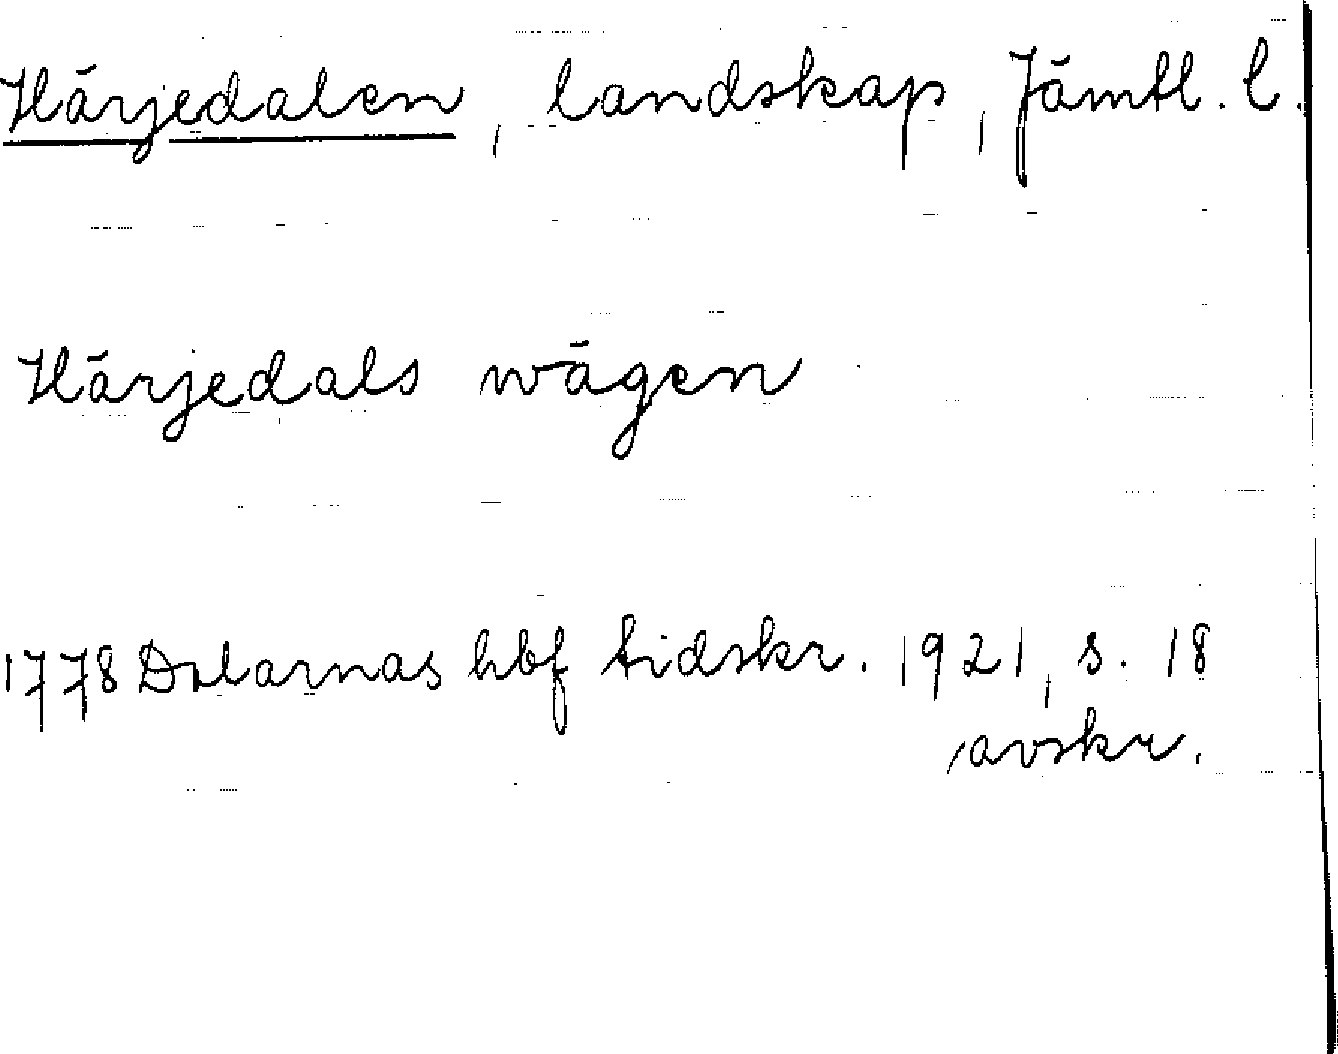 Härjedalen, landskap, Jämtl. l.
Härjedals wägen
1778 Dalarnas hbf tidskr. 1921, s. 18
avskr.